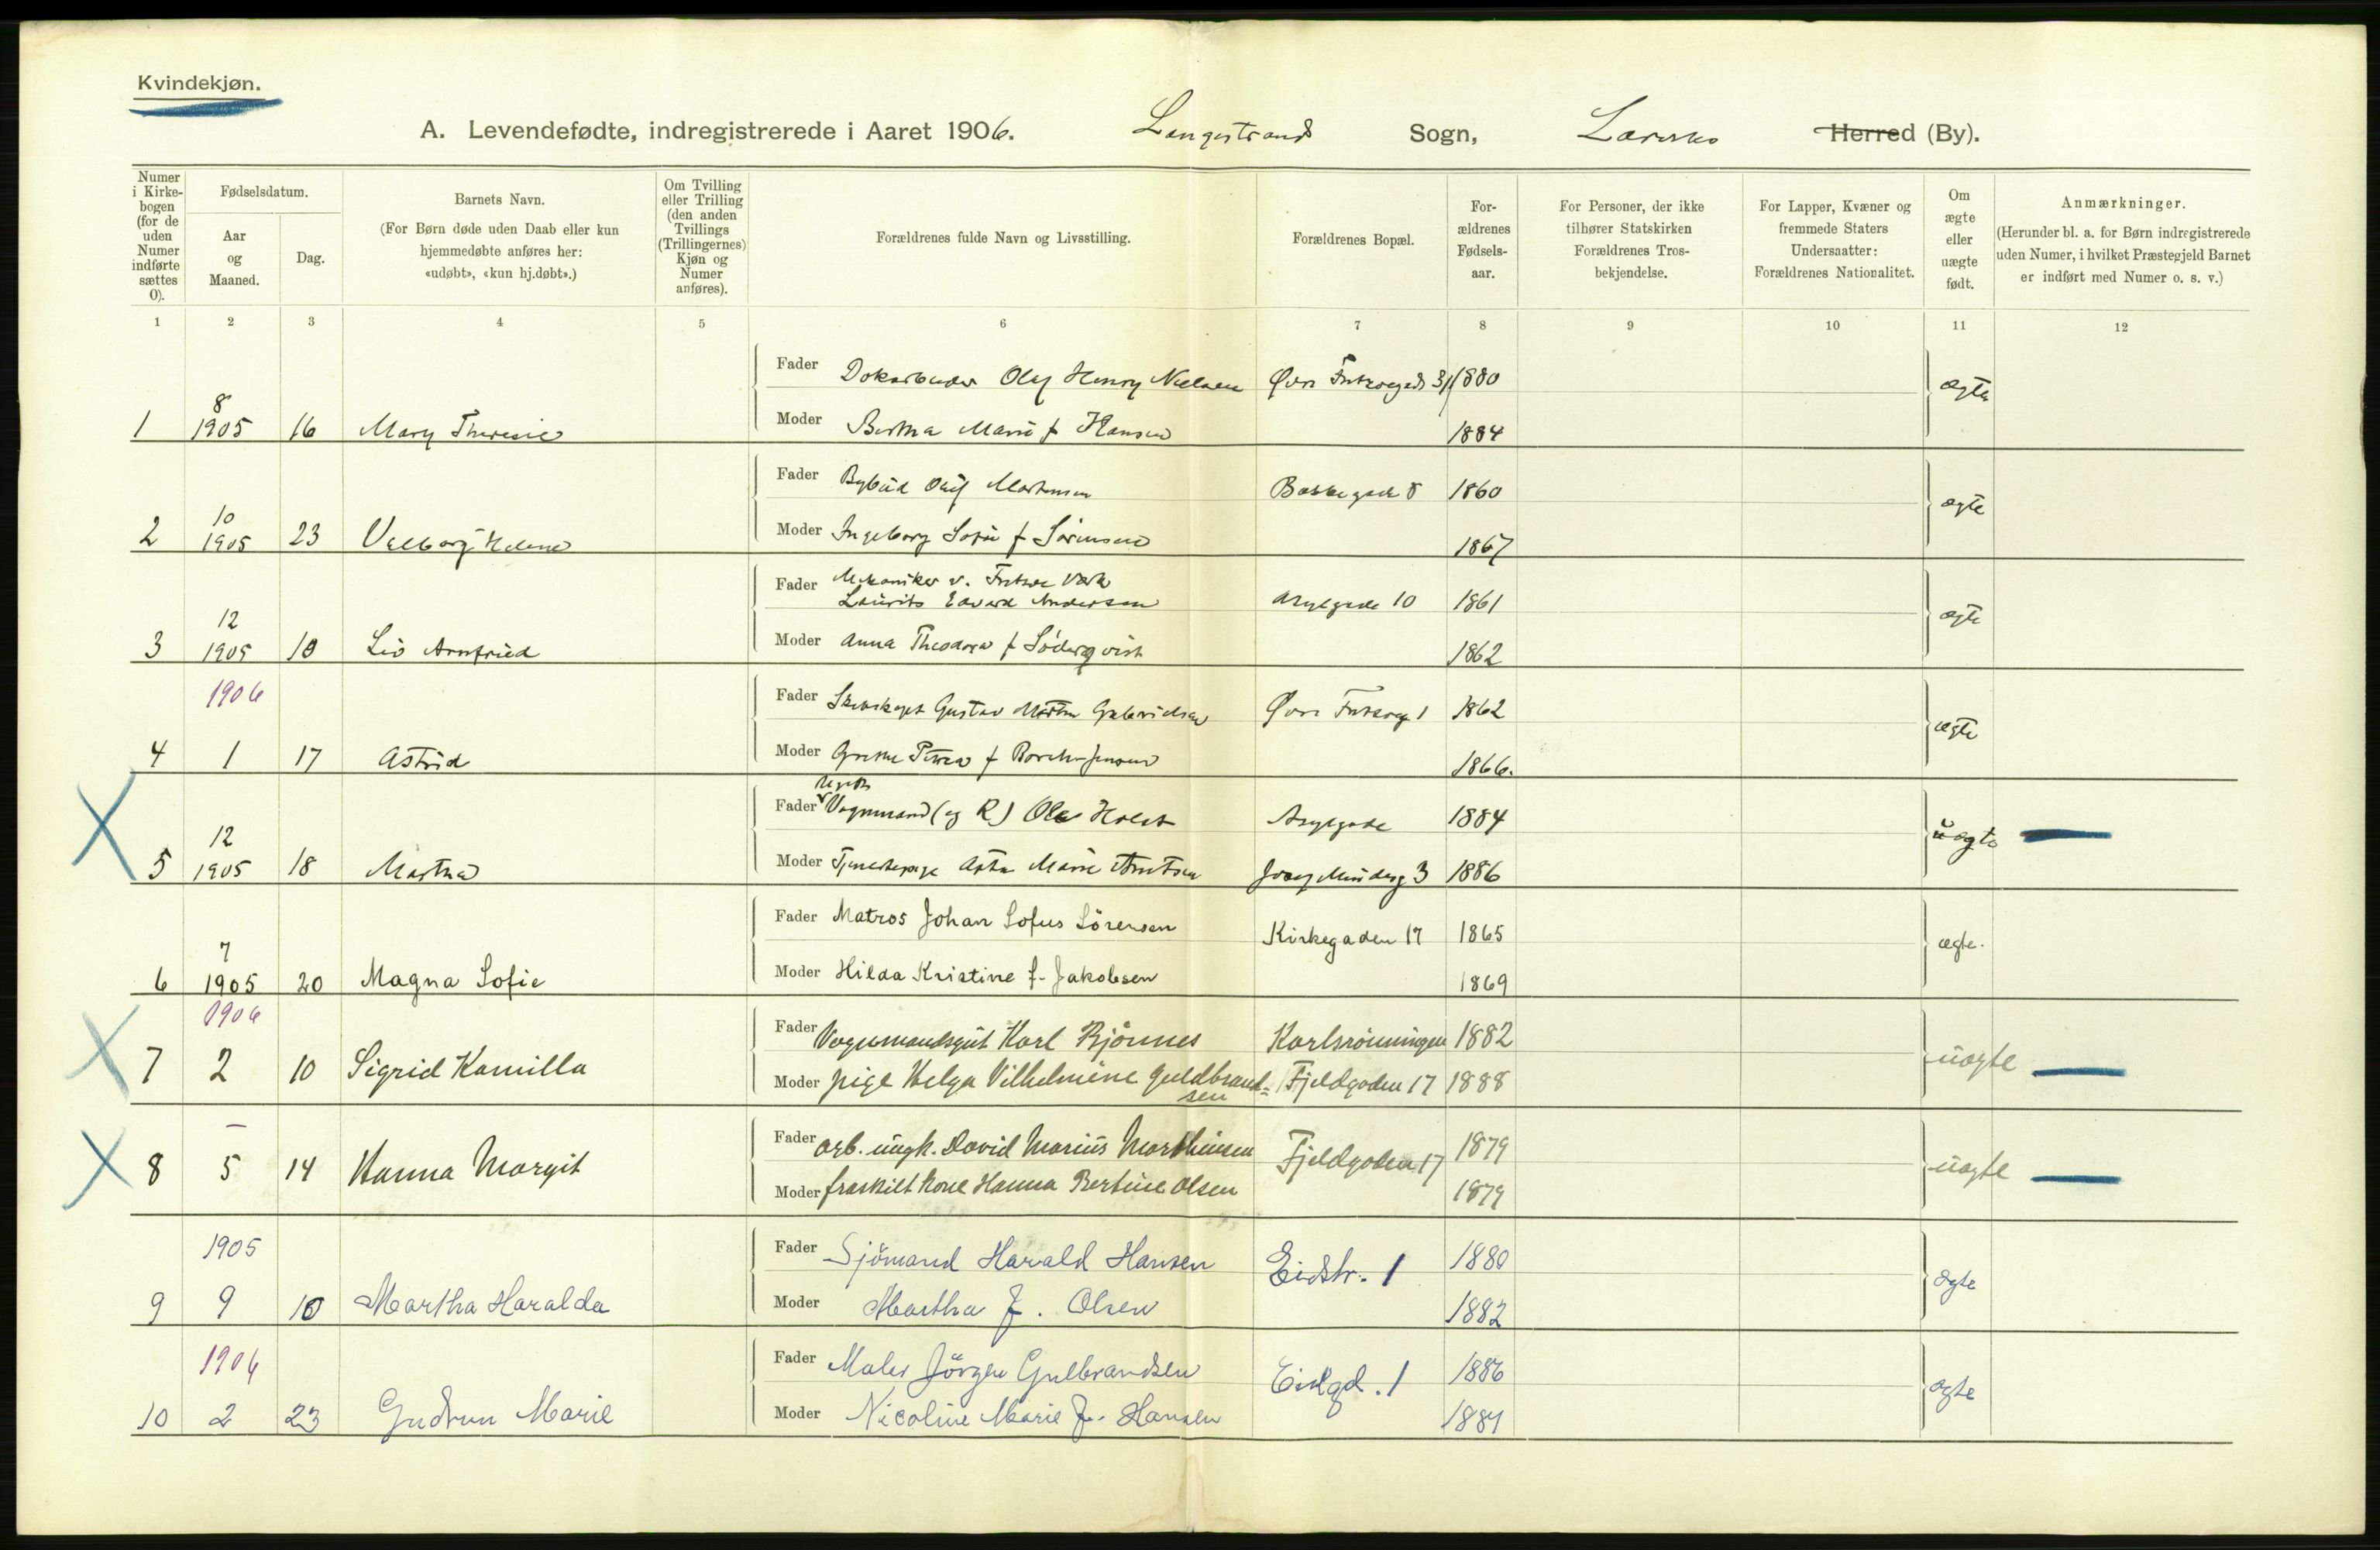 Kvindekjøn.
A. Levendefødte, indregistrerede i Aaret 1906. Langestrands Sogn, Larviks Herred (By).
Numer i Kirke-bogen (for de uden Numer indførte sættes 0).
Fødselsdatum.
Aar og Maaned.
Dag.
Barnets Navn.
(For Børn døde uden Daab eller kun hjemmedøbte anføres her: «udøbt», «kun hj.døbt».)
Om Tvilling eller Trilling (den anden Tvillings (Trillingernes) Kjøn og Numer anføres).
Forældrenes fulde Navn og Livsstilling.
Forældrenes Bopæl.
For-ældrenes Fødsels-aar.
For Personer, der ikke tilhører Statskirken Forældrenes Tros-bekjendelse.
For Lapper, Kvæner og fremmede Staters Undersaatter: Forældrenes Nationalitet.
Om ægte eller uægte født.
Anmærkninger.
(Herunder bl. a. for Børn indregistrerede uden Numer, i hvilket Præstegjeld Barnet er indført med Numer o. s. v.)
1 2 3 4 5 6 7 8 9 10 11 12
Fader Dokarbeider Olaf Henry Nielsen Øvre 1880 ægte
8
1 1905 16 Mary Theresie Moder Bertha Marie f Hansen 1884
Fader Bybud Oluf Martinsen Bakkegade 8 1860 ægte
10
2 1905 23 Valborg Helene Moder Ingeborg Sofie f Sørensen 1867
Fader Mekaniker v. Fritzøe Værk
Laurits Edvard Andersen Asylgade 10 1861 ægte
12
3 1905 10 Liv Arnfried Moder Anna Theodora f Söderqvist 1862
1906 Fader Gustav Gabrielsen Øvre 1 1862 ægte
4 1 17 Astrid Moder Grethe Petrea f Borch-Jensen 1866.
Fader Vognmand Ole Holst Asylgade 1884 uægte
12
5 1905 18 Martha Moder Tjenestepige Marie 3 1886
Fader Matros Johan Sofus Sörensen Kirkegaden 17 1865 ægte.
7
6 1905 20 Magna Sofie Moder Hilda Kristine f. Jakobsen 1869
1906 Fader Vognmandsgut Karl Bjönnes Karlsrönningen 1882 uægte
7 2 10 Sigrid Kamilla Moder pige Helga Vilhelmine Guldbrand=sen Fjeldgaden 17 1888
Fader arb. ungk. David Marius Marthinsen Fjeldgaden 17 1879 uægte
8 5 14 Hanna Margit Moder fraskilt kone Hanna Bertine Olsen 1879
1905 Fader Sjömand Harald Hansen Eidstr. 1 1880 ægte
9 9 10 Martha Haralda Moder Martha f. Olsen 1882
1906 Fader Maler Jörgen Gulbrandsen Eidgd. 1 1886 ægte
10 2 23 Gudrun Marie Moder Nicoline Marie f. Hansen 1884